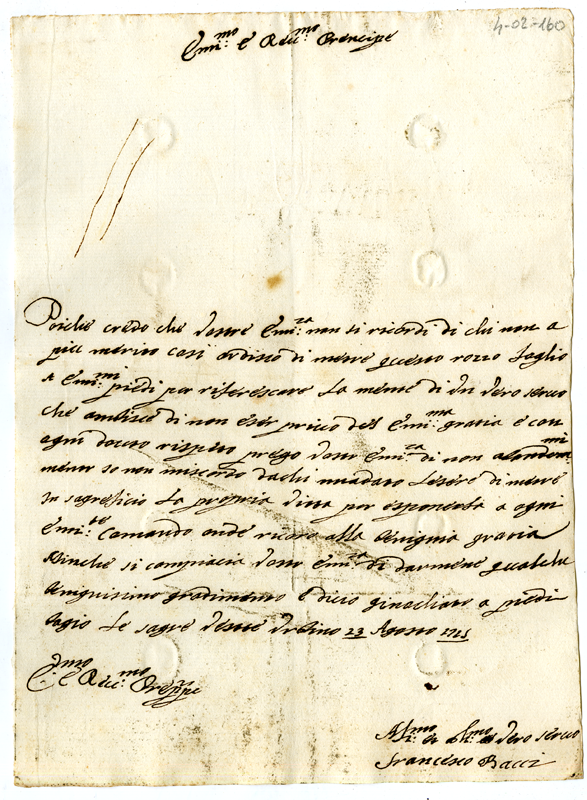 4-02-160
Emi:mo e Rev:mo Prencipe
Poiche credo che Vostre Emi:za non si ricordi di chi non a
piu merito cosi ardisco di mettre questo rozzo foglio
a Emi:mi piedi per rifrescare la mente di Un Vero servo
che ambisce di non eser privo del Emi:ma gratia e con
ogni dovuto rispetto prego Vostr Emi:za di non
mentr io non
in sagreficio la propria vitta per esponerla a ogni
Emi: Comando onde ricoro alla benignia gratia
Afinche si compiacia Vostr Emi:za di darmene qualche
benignissimo gradimento e dico ginochiato a piedi
bagio le sagre Veste Urbino 23 Agosto 1721
E:mo e Rev:mo Prencipe
Vero servo
Francesco Bacci